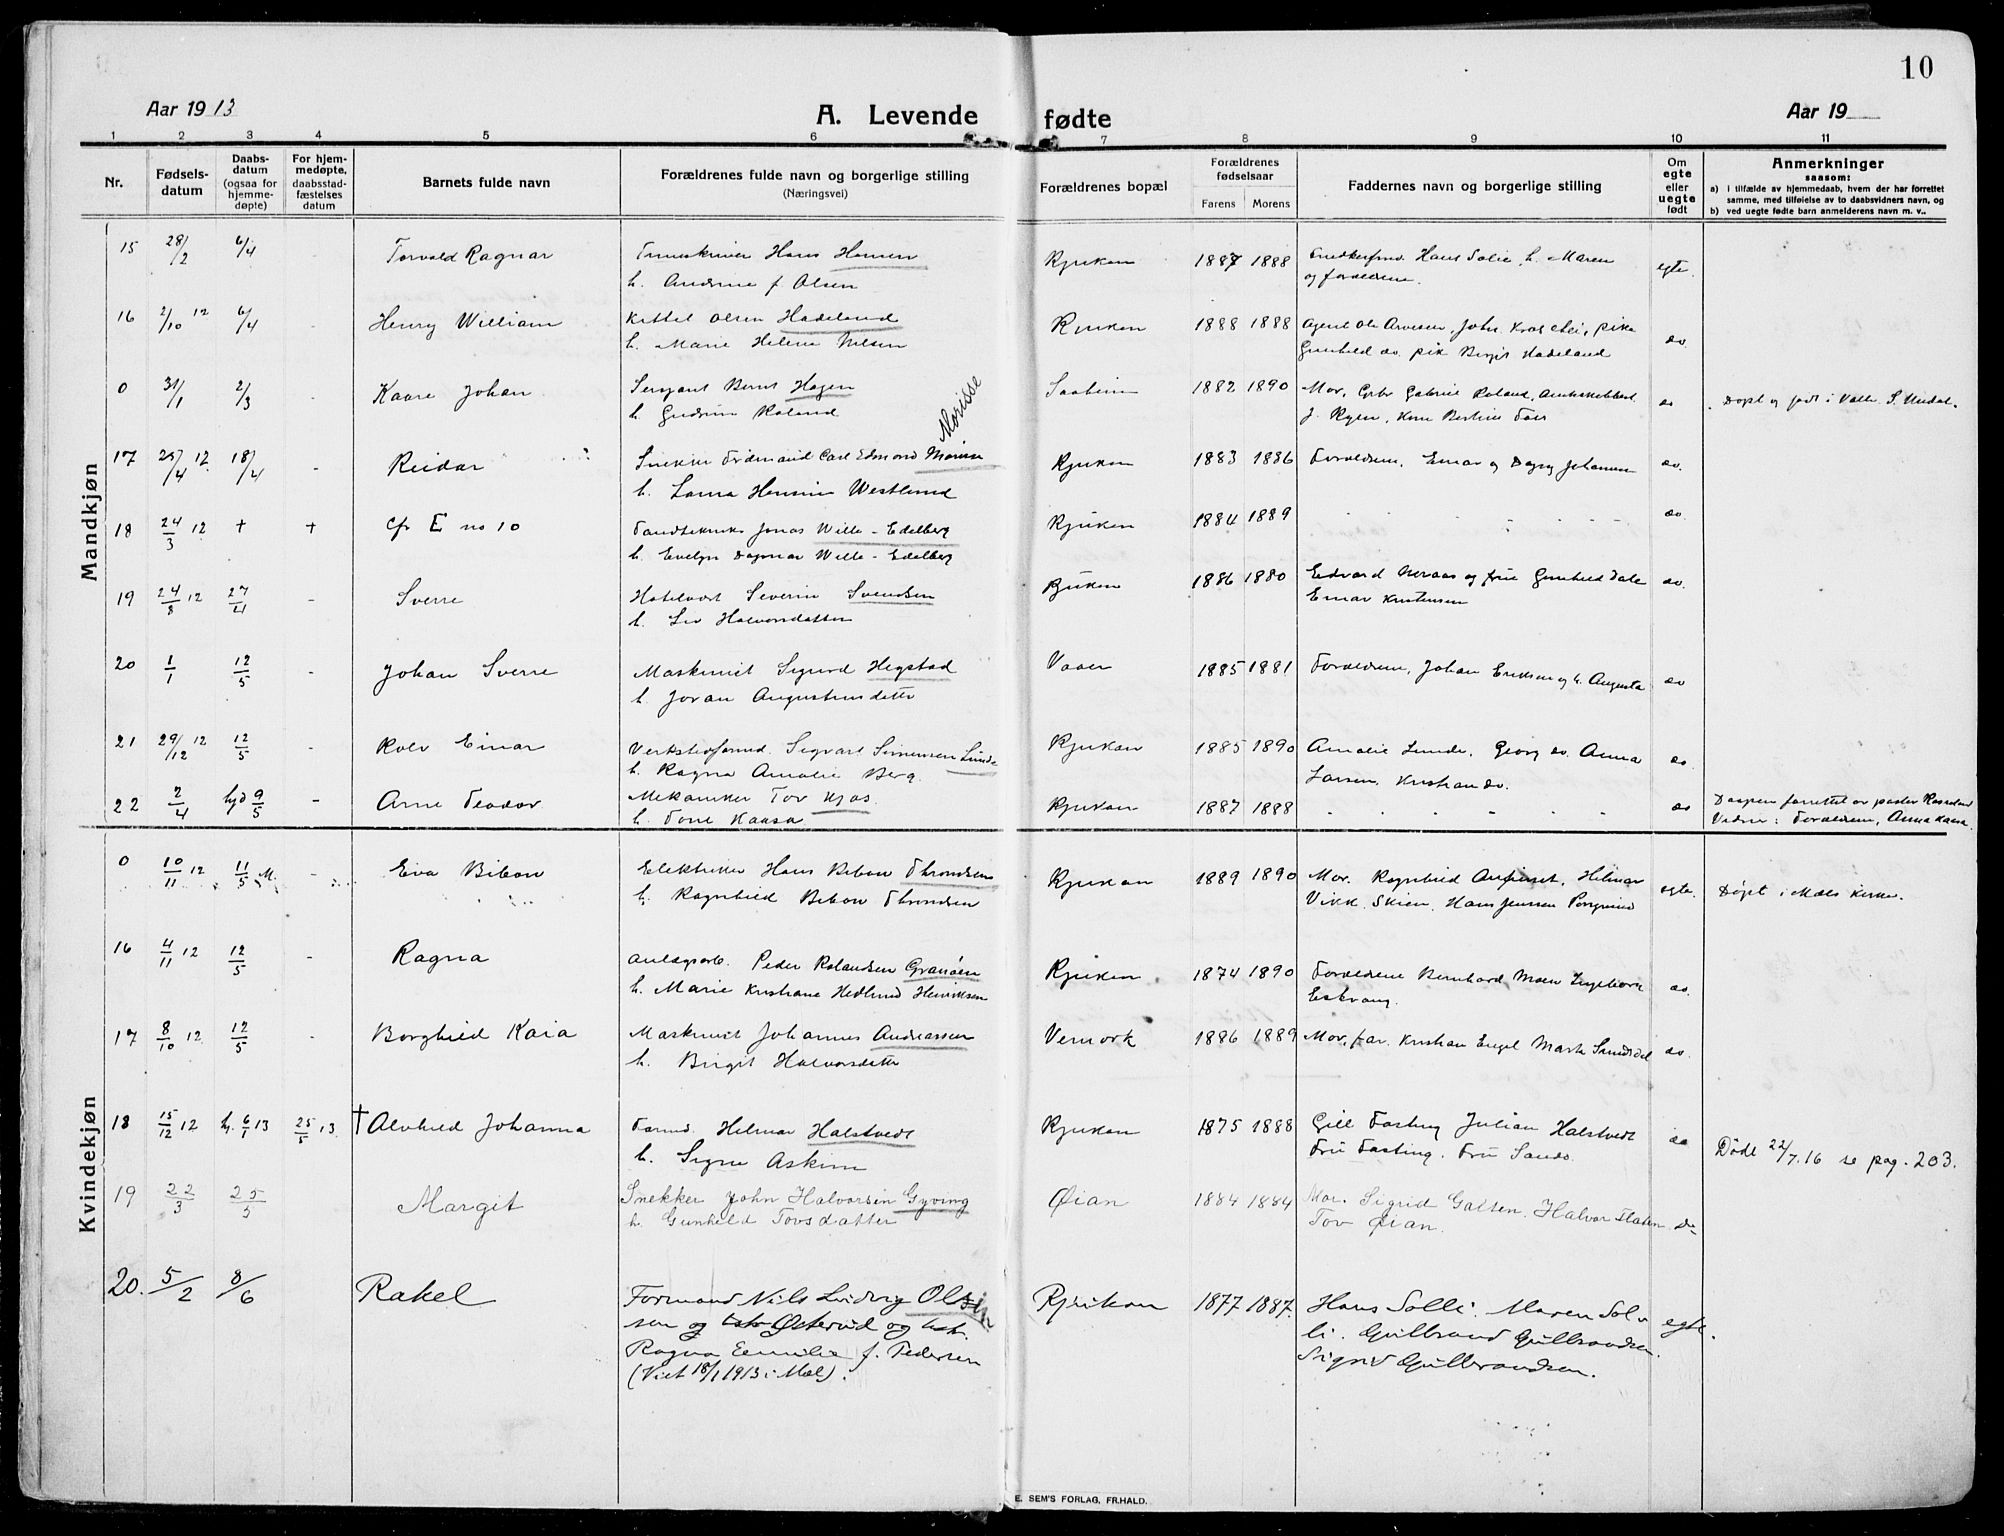 10
Aar 1913
A. Levende fødte
Aar 19
1 2 3 4 5 6 7 8 9 10 11
Nr.
Fødsels-
datum
Daabs-
datum
(ogsaa for
hjemme-
døpte)
For hjem-
medøpte,
daabsstad-
fæstelses
datum
Barnets fulde navn
Forældrenes fulde navn og borgerlige stilling
(Næringsvei)
Forældrenes bopæl
Forældrenes
fødselsaar
Farens Morens
Faddernes navn og borgerlige stilling
Om
egte
eller
uegte
født
Anmerkninger
saasom:
a) i tilfælde av hjemmedaab, hvem der har forrettet
samme, med tilføielse av to daabsvidners navn, og
b) ved uegte fødte barn anmelderens navn m. v..
Mandkjøn
15 28/2 6/4 Torvald Ragnar Hans Hansen Rjukan 1887 1888 Hans Solie, h. Maren egte.
h. Andrine f. Olsen og forældrene.
16 2/10 12 6/4 - Henry William Kittel Olsen Hadeland Rjukan 1888 1888 Agent Ole Arvesen, Johs.
h. Marie Helene Nilsen Gunhild do. pik Bergit Hadeland do.
0 31/1 2/3 - Kaare Johan Sersjant Bernt Hagen Saaheim 1882 1890 Mor, Gabriel Roland, do Døpt og født i Valle. S. Undal.
h. Gudrun Roland J. Ryen,
17 25/4 12 18/4 - Reidar Snekker Ferdinand Carl Edmond Morisse Morisse Rjukan 1883 1886 Forældrene, Einar og Dagny Johansen do.
h. Laura Hansine Westlund
18 24/3 12 + + Cfr E no 10 Tandtekniker Jonas Wille-Edelberg Rjukan 1884 1889 do.
h. Evelyn Dagmar Wille-Edelberg
19 24/8 12 27/4 - Sverre Hotelvært Severin Svendsen Rjukan 1886 1880 Edvard Neraas og frue Gunhild Dale do.
h. Liv Halvorsdatter Einar Kristensen
20 1/1 12/5 - Johan Sverre Maskinist Sigurd Hegstad Vaaer 1885 1881 Forældrene, Johan Eriksen og h. Augusta do
h. Joran Augustinsdatter
21 29/12 12 12/5 - Rolv Einar Verkstedformd. Sigvart Simensen Lunde Rjukan 1885 1890 Amalie Lunde, Georg do. Anna do.
h. Ragna Amalie Berg. Larsen, Kristian do.
22 2/4 hjd 9/5 - Arne Teodor Mekaniker Tov Kjos. Rjukan 1887 1888 do Daapen forrettet av pastor Rosseland
h. Tone Kaasa Vidner: Forældrene, Anna Kaasa.
Kvindekjøn
0 10/11 12 11/5 M. - Eva Bibow Elektriker Hans Bibow Throndsen Rjukan 1889 1890 Mor. Ragnhild Helmar egte. Døpt i Mæls Kirke.
h. Ragnhild Bibow Throndsen Vikk. Skien. Hans Jenssen Porsgrund
16 4/11 12 12/5 - Ragna Anlægsarb. Peder Rolandsen Granøen Rjukan 1874 1890 Forældrene Bernhard Moen Ingeborg do.
h. Marie Kristiane Hedlund Henriksen Eskvang.
17 8/10 12 12/5 - Borghild Kaia Maskinist Johannes Andreassen Vemork 1886 1889 Mor, far. Kristian Engel Marta Sundsdal do.
h. Birgit Halvorsdatter
18 15/12 12 h. 6/1 13 25/5 13. † Alvhild Johanna Formd. Helmar Halstvedt Rjukan 1875 1888 Gill Fasting Julian Halstvedt do Døde 22/7.16 se pag. 203.
h. Signe Askim Fru Fasting. Fru Sando.
19 22/3 25/5 Margit Snekker John Halvorsen Gyving Øian 1884 1884 Mor. Sigrid Galten. Halvor Flaten do
h. Gunhild Tovsdatter Tov Øian.
20. 5/2 8/6 Rakel Formand Nils Ludvig Olsen Rjukan 1877 1887. Hans Solli. Maren Sol- egte.
og Østerud og hst. li. Gulbrand Gulbrandsen.
Ragna Emilie f. Pedersen Sigrid Gulbrandsen.
(Viet 18/1 1913 i Mæl).
E. SEM'S FORLAG, FR.HALD.